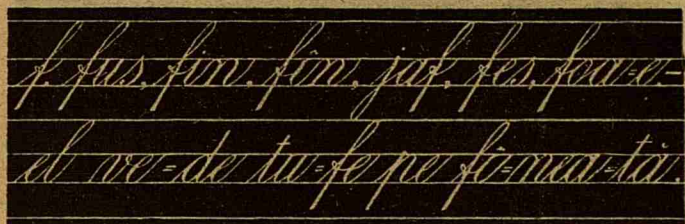 f, fus, fin, fîn, jaf, fes, foa=e-
el ve=de tu=fe pe fô=nea=tă.